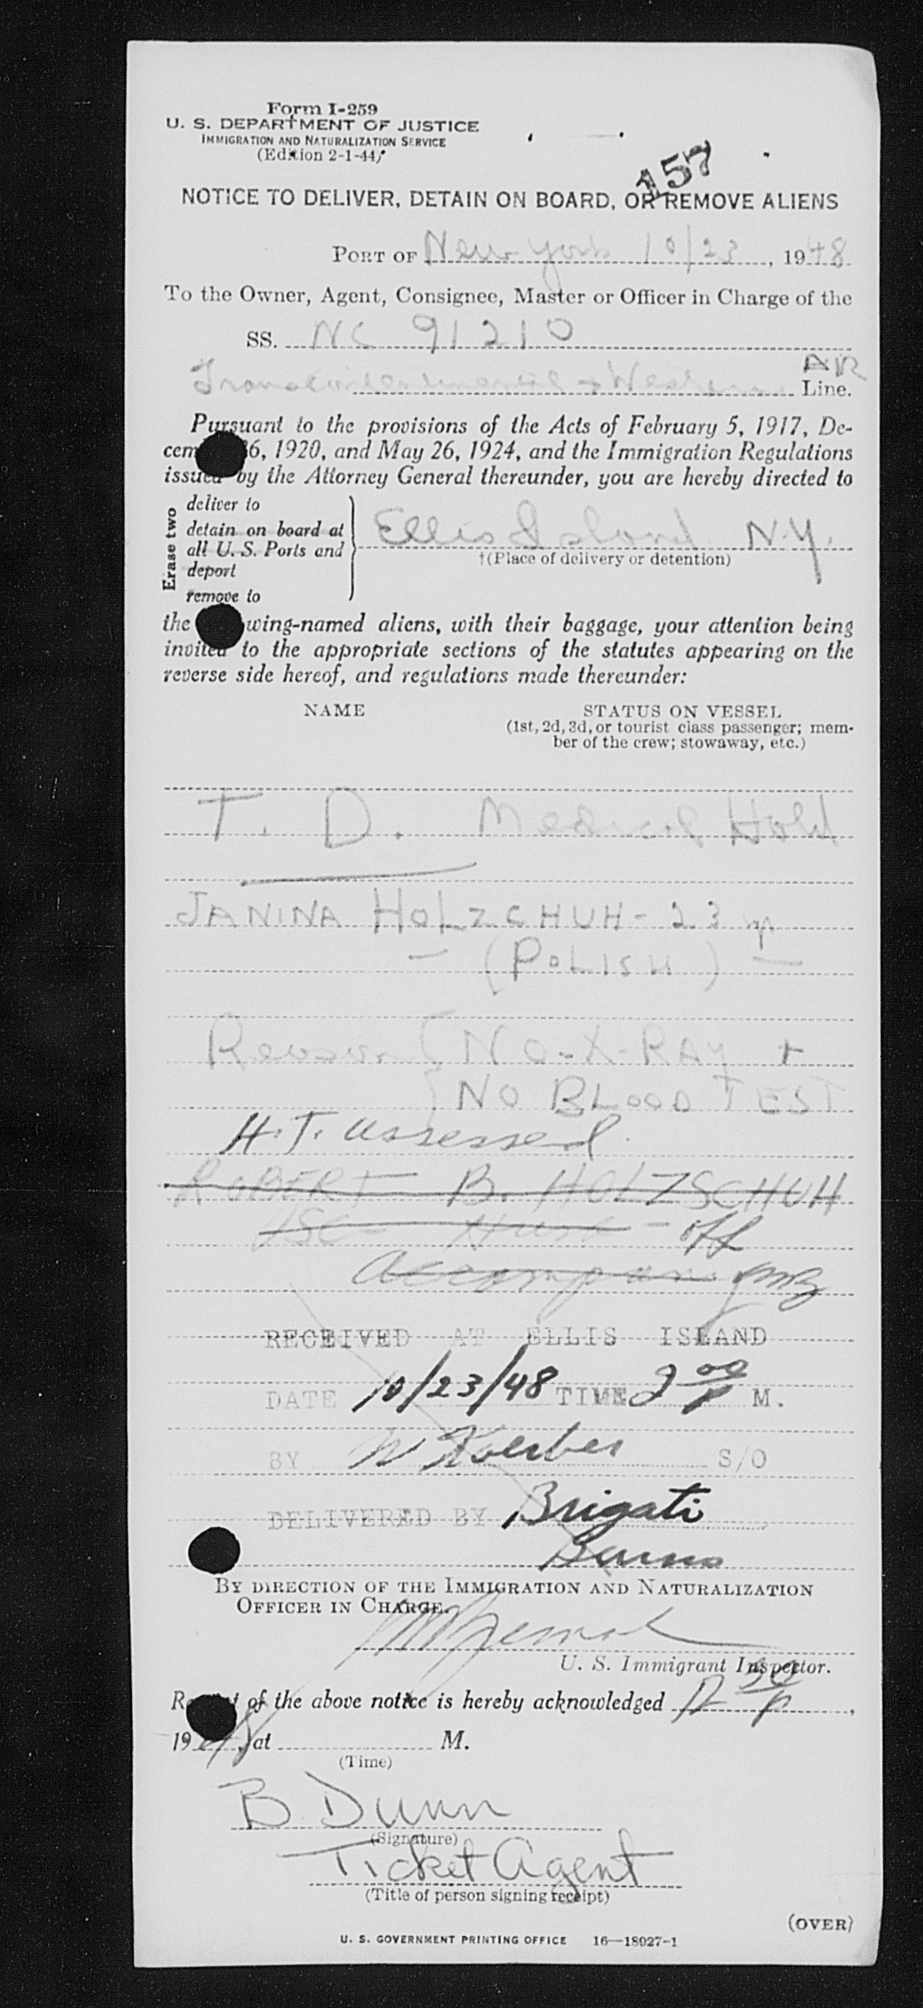 Form I-259
U. S. DEPARTMENT OF JUSTICE
IMMIGRATION AND NATURALIZATION SERVICE
(Edition 2-1-44)
157
NOTICE TO DELIVER, DETAIN ON BOARD, OR REMOVE ALIENS
PORT OF New York 10/23, 1948
To the Owner, Agent, Consignee, Master or Officer in Charge of the
SS. NC 91210
Transcontinental + Western AIR Line.
Pursuant to the provisions of the Acts of February 5, 1917, De-
cem 26, 1920, and May 26, 1924, and the Immigration Regulations
issued by the Attorney General thereunder, you are hereby directed to
Erase two
deliver to
detain on board at
all U. S. Ports and
deport
remove to
Ellis Island N.Y.
†(Place of delivery or detention)
the wing-named aliens, with their baggage, your attention being
invited to the appropriate sections of the statutes appearing on the
reverse side hereof, and regulations made thereunder:
NAME STATUS ON VESSEL
(1st, 2d, 3d, or tourist class passenger; mem-
ber of the crew; stowaway, etc.)
T. D. Medical Hold
JANINA HOLZCHUH - 23
- (POLISH) -
Reason { NO-X-RAY +
NO BLOOD TEST
H.T. assessed.
ROBERT B. HOLZSCHUH
USC Husb - off
Accompanying
RECEIVED AT ELLIS ISLAND
DATE 10/23/48 TIME 2 00 P M.
BY W Koerber S/O
DELIVERED BY Brigati
Burns
BY DIRECTION OF THE IMMIGRATION AND NATURALIZATION
OFFICER IN CHARGE.
U. S. Immigrant Inspector.
R t of the above notice is hereby acknowledged 12 30 P,
1948, at M.
(Time)
B Dunn
(Signature)
Ticket Agent
(Title of person signing receipt)
(OVER)
U. S. GOVERNMENT PRINTING OFFICE 16—18027-1